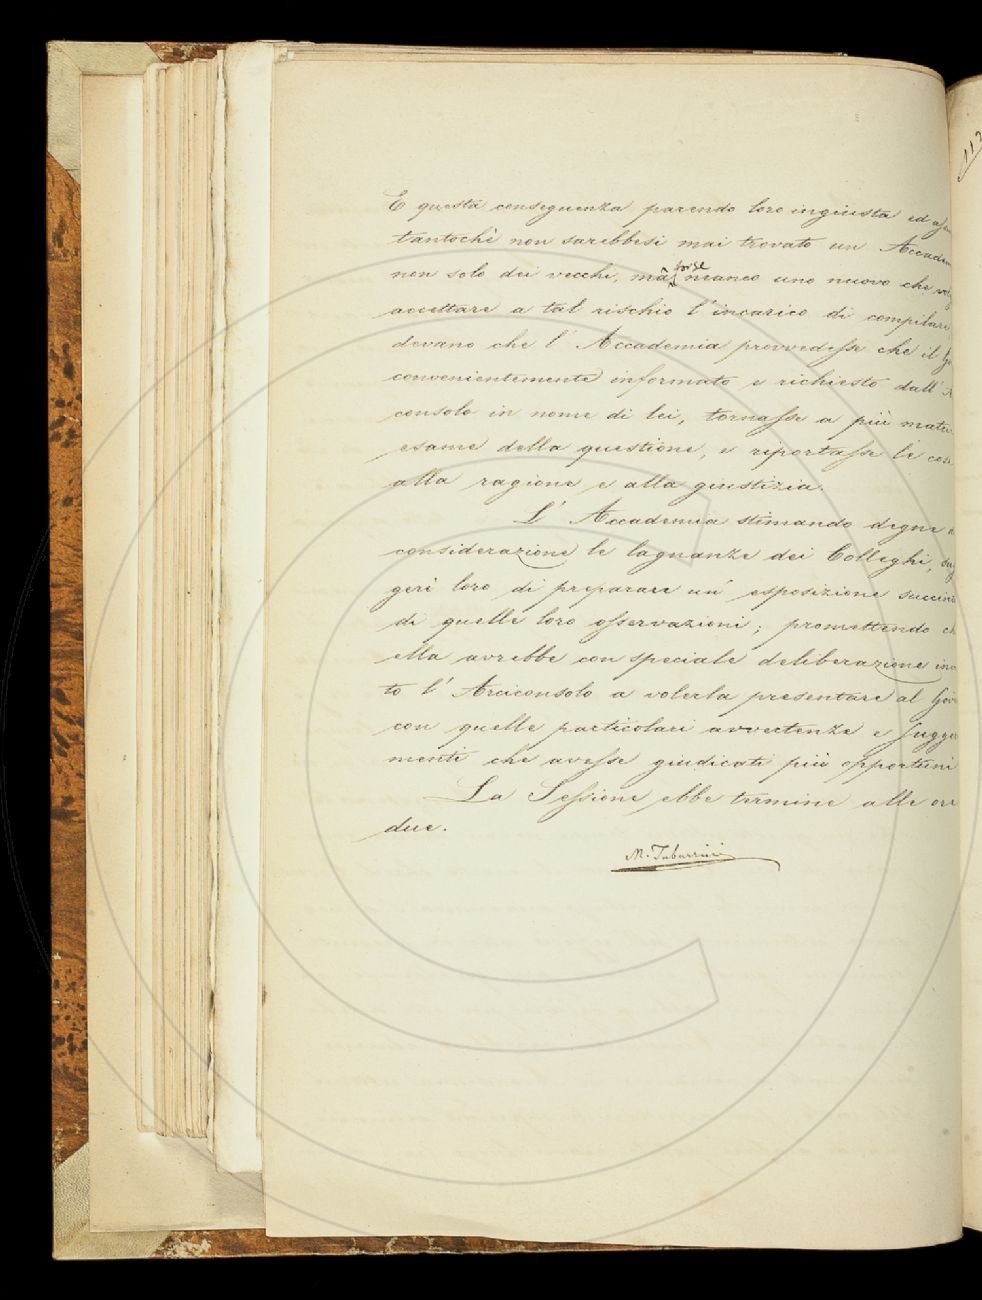 113
E questa conseguenza parendo loro ingiusta ed
tantochè non sarebbesi mai trovato un Accadem
non solo dei vecchi, ma forse neanco uno nuovo che
accettare a tal rischio l'incarico di compilare
devano che l'Accademia provvedesse che il
convenientemente informato e richiesto dall'A
consolo in nome di lei, tornasse a più matu
esame della questione, e riportasse le cose
alla ragione e alla giustizia.
L'Accademia stimando degne
considerazione le lagnanze dei Colleghi, sug
gerì loro di preparare un'esposizione succin
di quelle loro osservazioni; promettendo ch
ella avrebbe con speciale deliberazione inv
to l'Arciconsolo a volerla presentare al Gov
con quelle particolari avvertenze e sugge
menti che avesse giudicati più opportuni
La Sessione ebbe termine alle ore
due.
M. Tabarrini